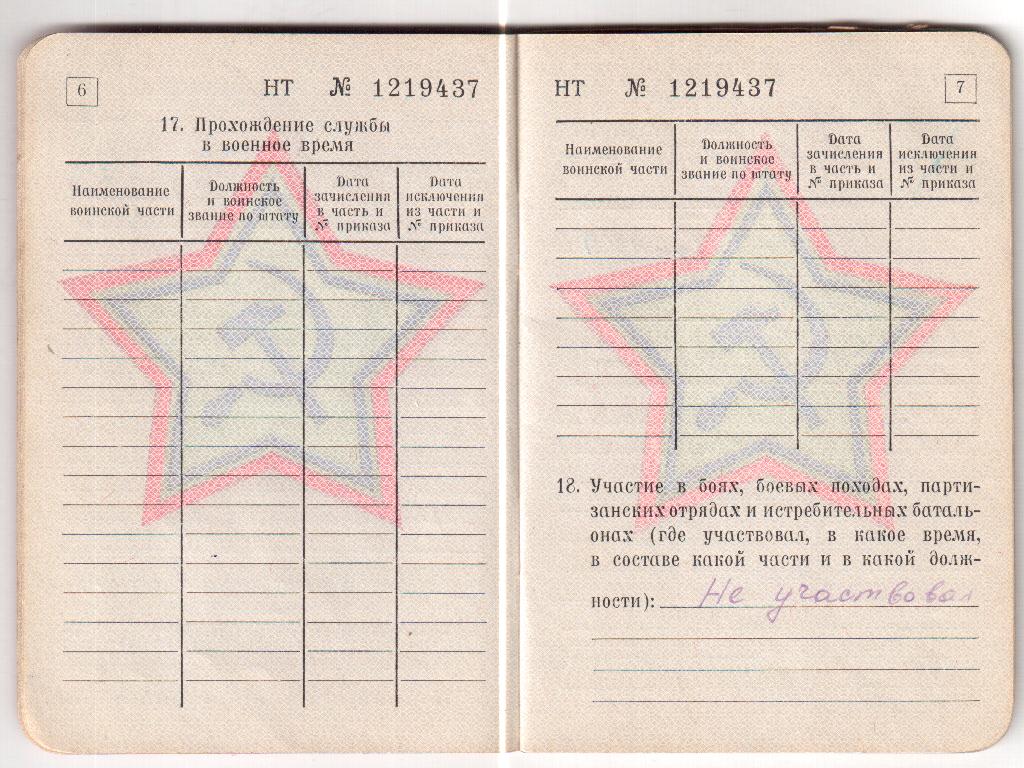 6
НТ № 1219437
17. Прохождение службы
в военное время
Наименование
воинской части
Должность
и воинское
звание по штату
Дата
зачисления
в часть и
№ приказа
Дата
исключения
из части и
№ приказа
НТ № 1219437
7
Наименование
воинской части
Должность
и воинское
звание по штату
Дата
зачисления
в часть и
№ приказа
Дата
исключения
из части и
№ приказа
18. Участие в боях, боевых походах, парти-
занских отрядах и истребительных баталь-
онах (где участвовал, в какое время,
в составе какой части и в какой долж-
ности): Не участвовал